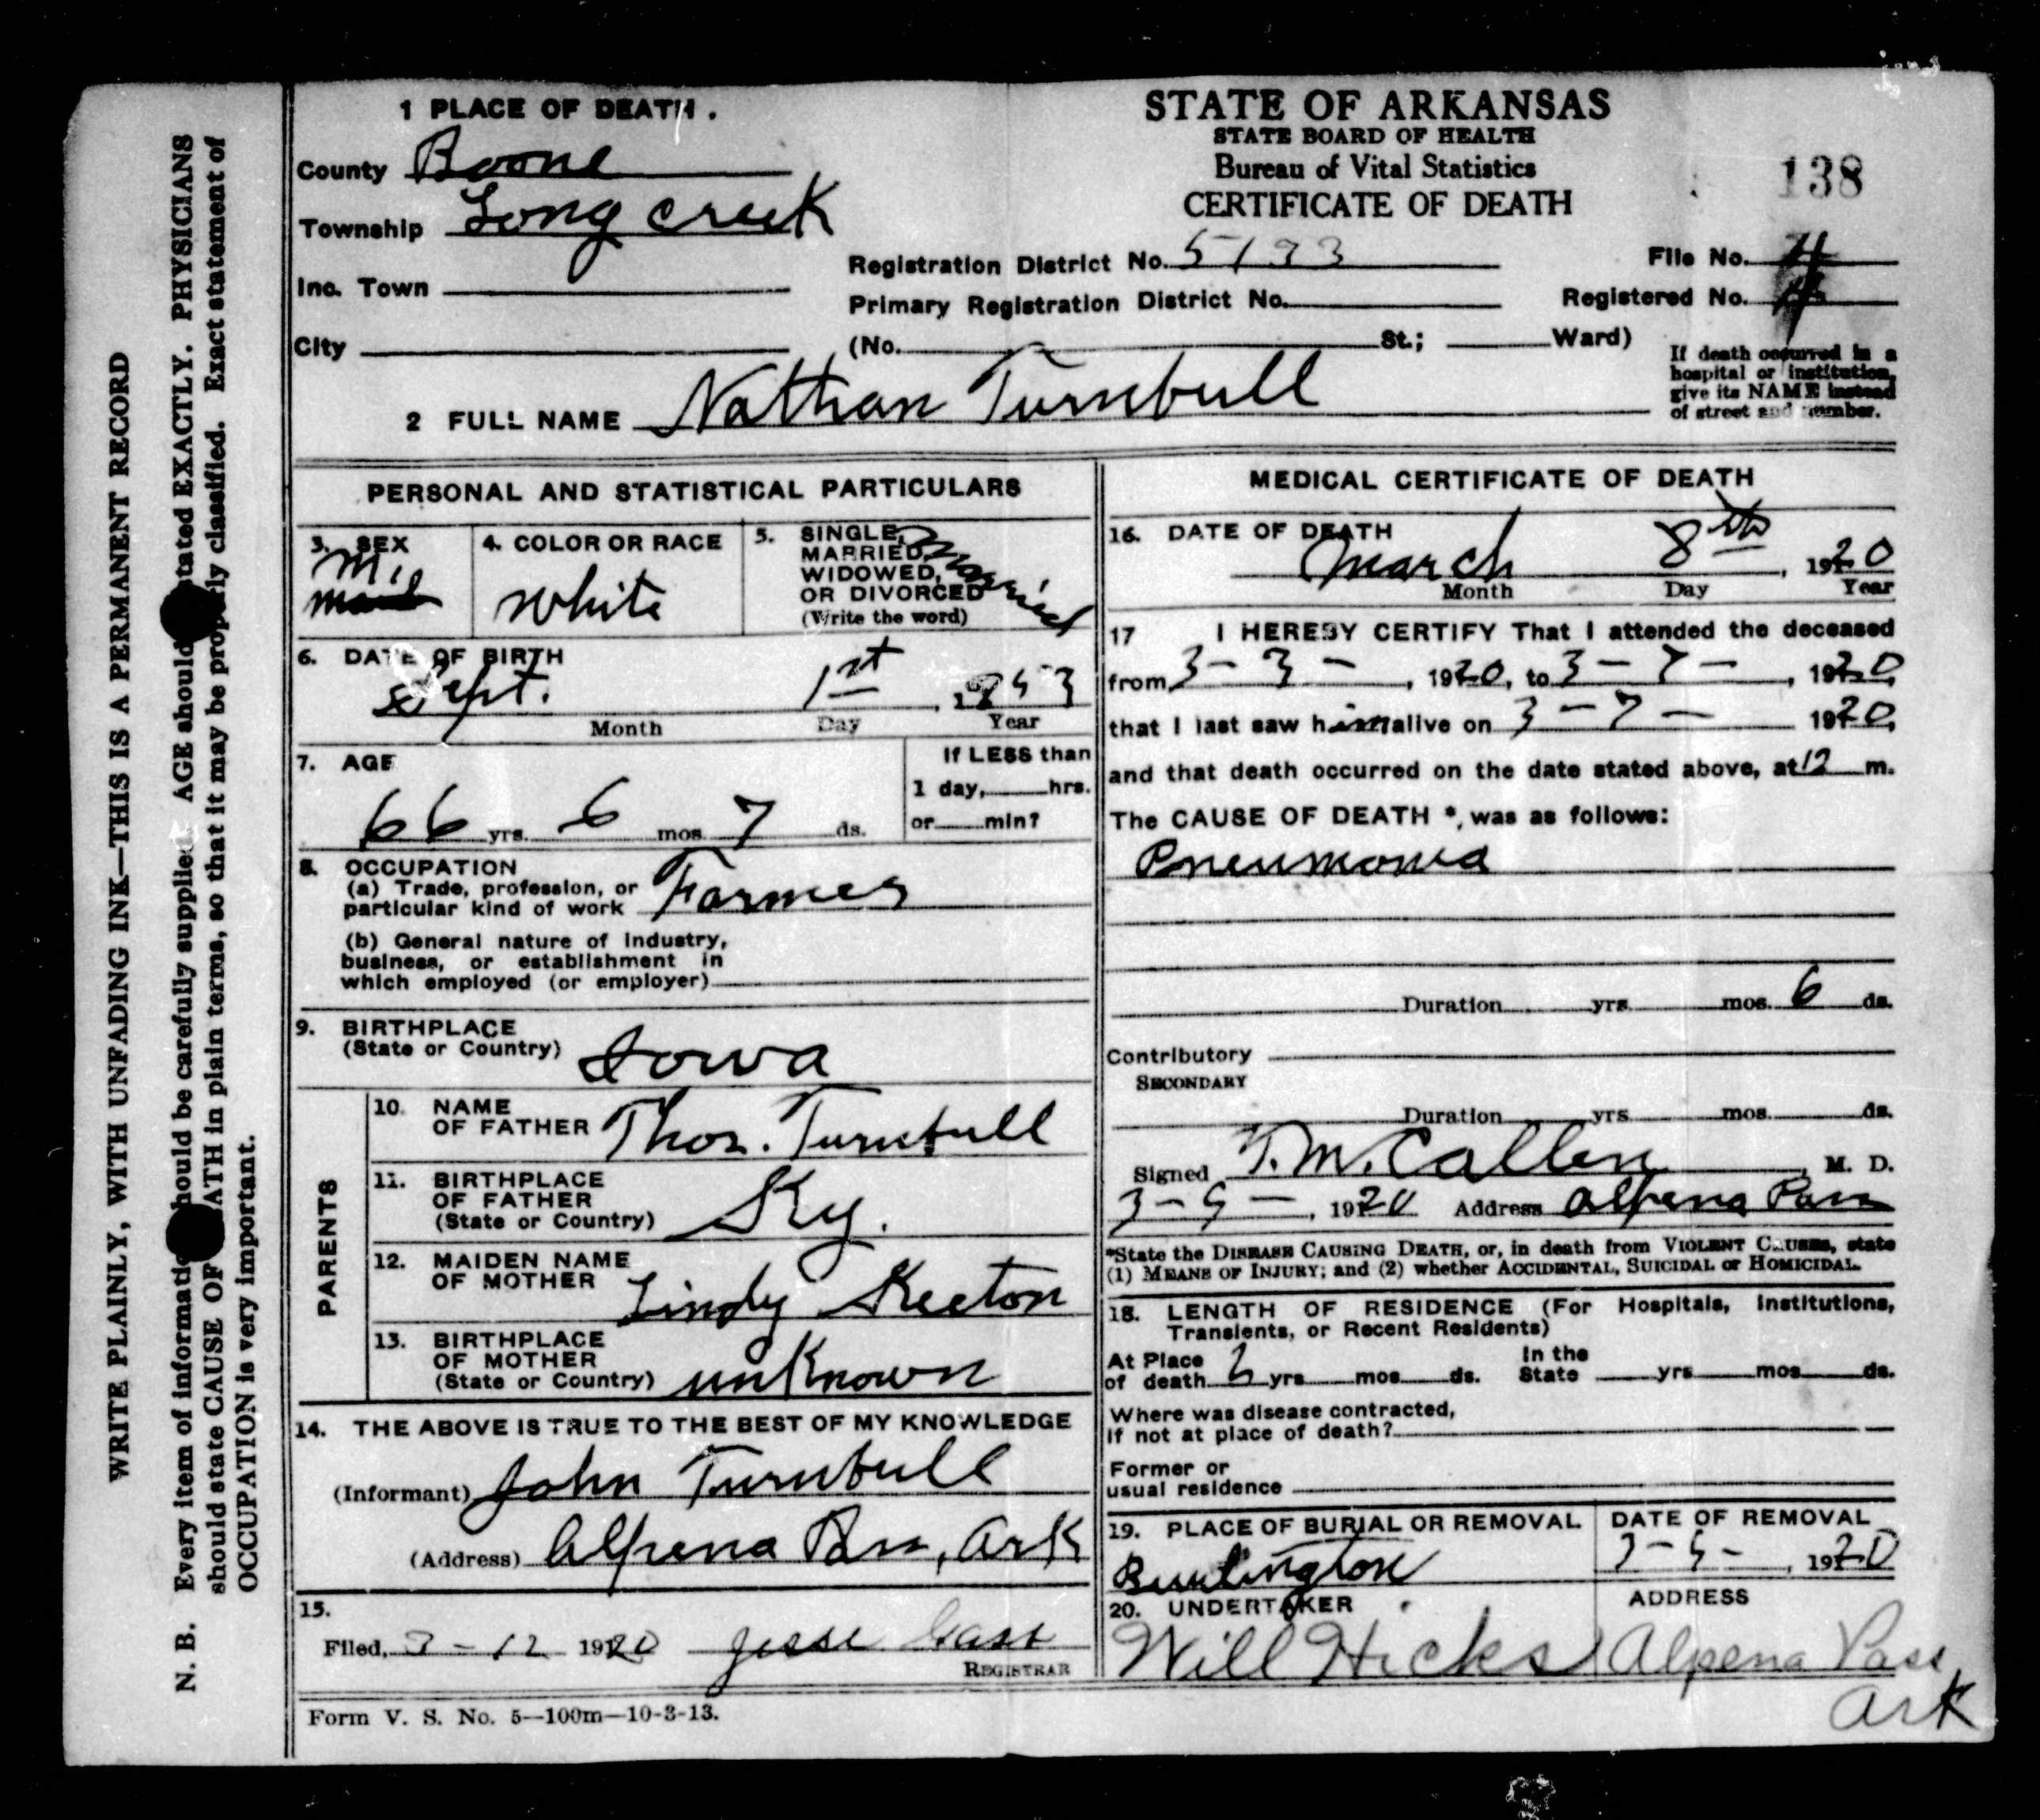 1 PLACE OF DEATH.
County Boone
Township Long creek
Inc. Town
City
STATE OF ARKANSAS
STATE BOARD OF HEALTH
Bureau of Vital Statistics
CERTIFICATE OF DEATH
138
Registration District No. 5133
File No. 4
Primary Registration District No.
Registered No. 4
(No. St.; Ward)
If death occurred in a
hospital or institution,
give its NAME instead
of street and number.
2 FULL NAME Nathan Turnbull
PERSONAL AND STATISTICAL PARTICULARS
3. SEX
M.
4. COLOR OR RACE
White
5. SINGLE,
MARRIED,
WIDOWED,
OR DIVORCED
(Write the word)
Married
6. DATE OF BIRTH
Sept. 1st, 1853
Month Day Year
7. AGE
66 yrs. 6 mos 7 ds.
If LESS than
1 day, hrs.
or min?
8. OCCUPATION
(a) Trade, profession, or
particular kind of work Farmer
(b) General nature of industry,
business, or establishment in
which employed (or employer)
9. BIRTHPLACE
(State or Country) Iowa
PARENTS
10. NAME
OF FATHER Thos. Turnbull
11. BIRTHPLACE
OF FATHER
(State or Country) Ky.
12. MAIDEN NAME
OF MOTHER Lindy Keeton
13. BIRTHPLACE
OF MOTHER
(State or Country) unknown
14. THE ABOVE IS TRUE TO THE BEST OF MY KNOWLEDGE
(Informant) John Turnbull
(Address) Alpena Pass, Ark
15.
Filed, 3-12 1920 Jesse Gass
REGISTRAR
Form V. S. No. 5—100m—10-3-13.
MEDICAL CERTIFICATE OF DEATH
16. DATE OF DEATH
March 8th, 1920
Month Day Year
17 I HEREBY CERTIFY That I attended the deceased
from 3-3-, 1920, to 3-7-, 1920,
that I last saw him alive on 3-7- 1920,
and that death occurred on the date stated above, at 12 m.
The CAUSE OF DEATH *, was as follows:
Pneumonia
Duration yrs mos. 6 ds.
Contributory
SECONDARY
Duration yrs mos. ds.
Signed T. M. Callen, M. D.
3-9-, 1920 Address Alpena Pass
*State the DISEASE CAUSING DEATH, or, in death from VIOLENT CAUSES, state
(1) MEANS OF INJURY; and (2) whether ACCIDENTAL, SUICIDAL or HOMICIDAL.
18. LENGTH OF RESIDENCE (For Hospitals, Institutions,
Transients, or Recent Residents)
At Place
of death yrs mos ds.
In the
State yrs mos ds.
Where was disease contracted,
if not at place of death?
Former or
usual residence
19. PLACE OF BURIAL OR REMOVAL
Burlington
DATE OF REMOVAL
3-9-, 1920
20. UNDERTAKER
Will Hicks
ADDRESS
Alpena Pass
Ark
WRITE PLAINLY, WITH UNFADING INK—THIS IS A PERMANENT RECORD
N. B. Every item of information should be carefully supplied. AGE should stated EXACTLY. PHYSICIANS
should state CAUSE OF ATH in plain terms, so that it may be properly classified. Exact statement of
OCCUPATION is very important.